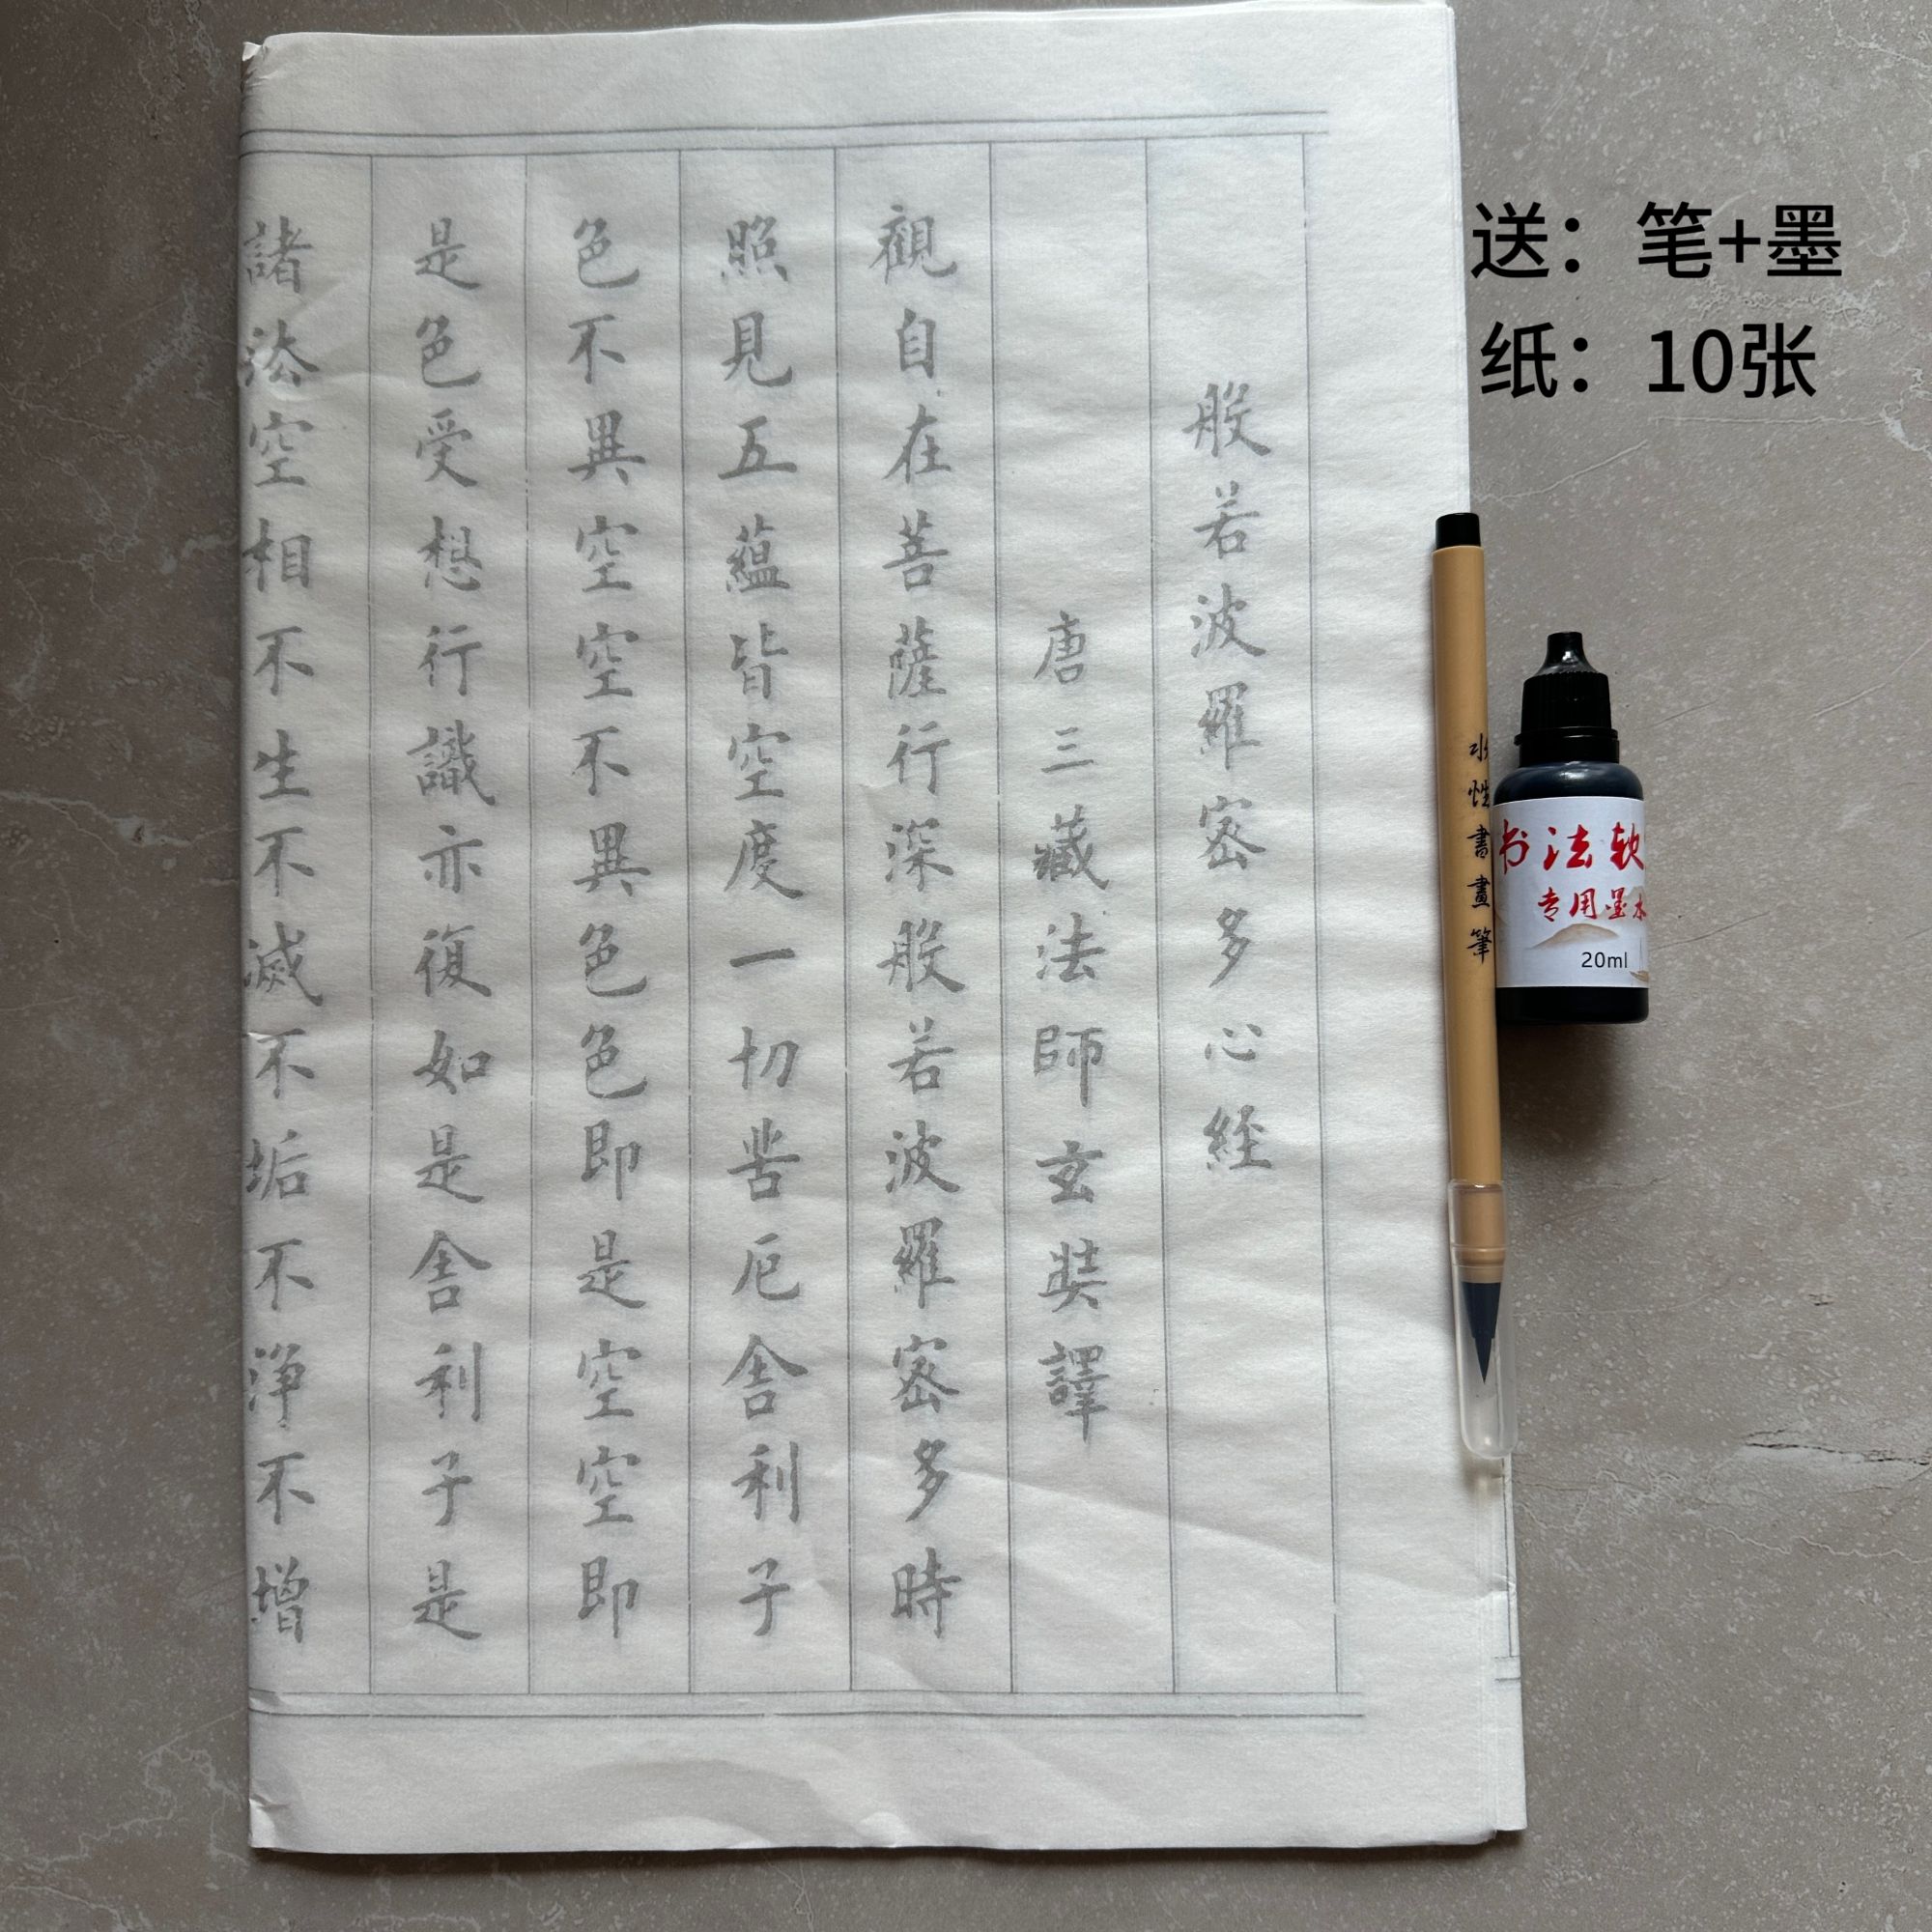 般若波羅密多心経
唐三藏法師玄奘譯
觀自在菩薩行深般若波羅密多時
照見五蘊皆空度一切苦厄舍利子
色不異空空不異色色即是空空即
是色受想行識亦復如是舍利子是
諸法空相不生不滅不垢不淨不增
送：笔+墨
纸：10张
水性書畫筆
书法软
专用墨水
20ml